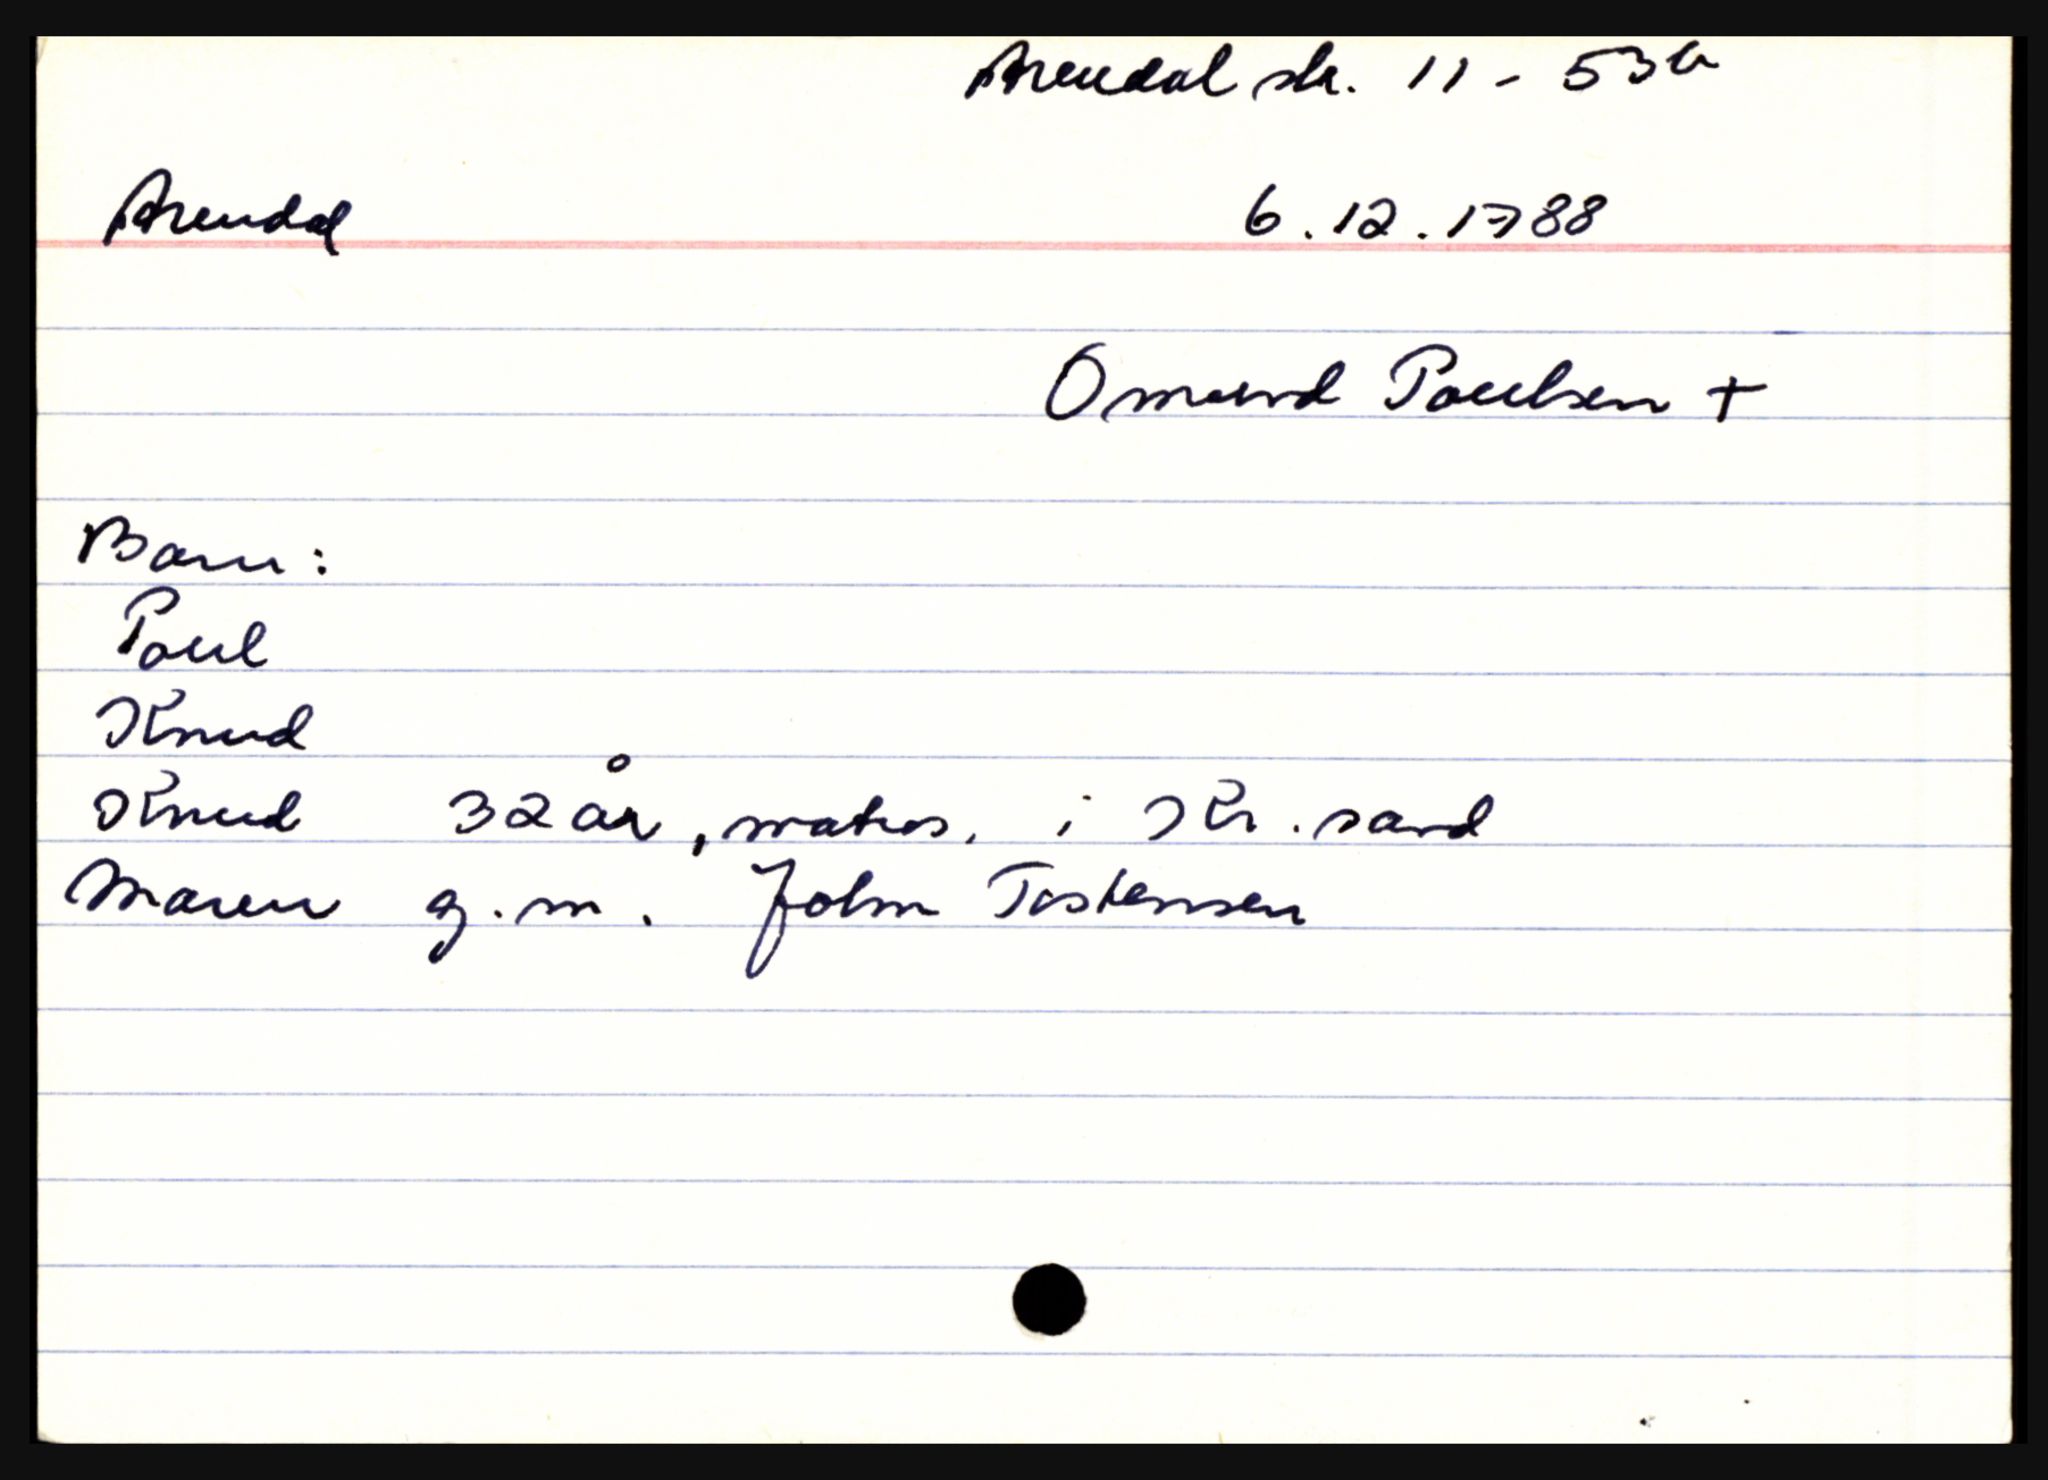 Arendal sk. 11 - 53b
Arendal 6.12.1788
Omund Poulsen +
Barn:
Poul
Knud
Knud 32 år, matros, i Kr.sand
Maren g.m. John Tostensen